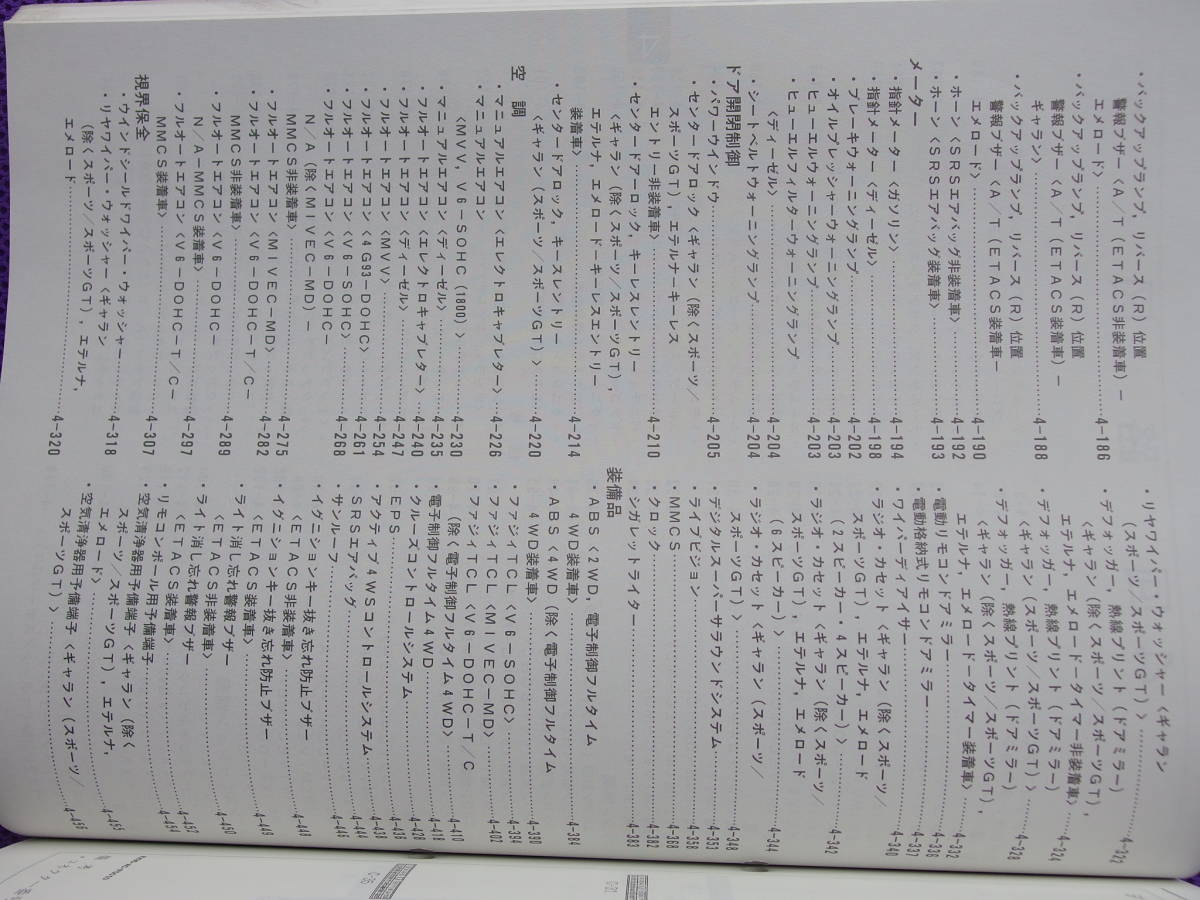 ・バックアップランプ，リバース（R）位置
警報ブザー〈A／T（ETACS非装着車）－
エメロード〉……4-186
・バックアップランプ，リバース（R）位置
警報ブザー〈A／T（ETACS装着車）－
ギャラン〉……4-188
・バックアップランプ，リバース（R）位置
警報ブザー〈A／T（ETACS装着車－
エメロード〉……4-190
・ホーン〈SRSエアバッグ非装着車〉……4-192
・ホーン〈SRSエアバッグ装着車〉……4-193
メーター
・指針メーター〈ガソリン〉……4-194
・指針メーター〈ディーゼル〉……4-198
・ブレーキウォーニングランプ……4-202
・オイルプレッシャーウォーニングランプ……4-203
・ヒューエルウォーニングランプ……4-203
・ヒューエルフィルターウォーニングランプ
〈ディーゼル〉……4-204
・シートベルトウォーニングランプ……4-204
ドア開閉制御
・パワーウインドウ……4-205
・センタードアロック〈ギャラン（除くスポーツ／
スポーツGT），エテルナ－キーレス
エントリー非装着車〉……4-210
・センタードアーロック，キーレスレントリー
〈ギャラン（除くスポーツ／スポーツGT），
エテルナ，エメロード－キーレスエントリー
装着車〉……4-214
・センタードアロック，キースレントリー
〈ギャラン（スポーツ／スポーツGT）〉……4-220
空　調
・マニュアルエアコン〈エレクトロキャブレター〉……4-226
・マニュアルエアコン
〈MVV，V6－SOHC（1800）〉……4-230
・マニュアルエアコン〈ディーゼル〉……4-235
・フルオートエアコン〈エレクトロキャブレター〉……4-240
・フルオートエアコン〈ディーゼル〉……4-247
・フルオートエアコン〈MVV〉……4-254
・フルオートエアコン〈4G93－DOHC〉……4-261
・フルオートエアコン〈V6－SOHC〉……4-268
・フルオートエアコン〈V6－DOHC－
N／A（除くMIVEC－MD）－
MMCS非装着車〉……4-275
・フルオートエアコン〈MIVEC－MD〉……4-282
・フルオートエアコン〈V6－DOHC－T／C－
MMCS非装着車〉……4-289
・フルオートエアコン〈V6－DOHC－
N／A－MMCS装着車〉……4-297
・フルオートエアコン〈V6－DOHC－T／C－
MMCS装着車〉……4-307
視界保全
・ウインドシールドワイパー・ウォッシャー……4-318
・リヤワイパー・ウォッシャー〈ギャラン
（除くスポーツ／スポーツGT），エテルナ，
エメロード……4-320
・リヤワイパー・ウォッシャー〈ギャラン
（スポーツ／スポーツGT）〉……4-322
・デフォッガー，熱線プリント（ドアミラー）
〈ギャラン（除くスポーツ／スポーツGT），
エテルナ，エメロード－タイマー非装着車〉……4-324
・デフォッガー，熱線プリント（ドアミラー）
〈ギャラン（スポーツ／スポーツGT）〉……4-328
・デフォッガー，熱線プリント（ドアミラー）
〈ギャラン（除くスポーツ／スポーツGT），
エテルナ，エメロード－タイマー装着車〉……4-332
・電動リモコンドアミラー……4-336
・電動格納式リモコンドアミラー……4-337
・ワイパーディアイサー……4-340
・ラジオ・カセット〈ギャラン（除くスポーツ／
スポーツGT），エテルナ，エメロード
（2スピーカー，4スピーカー）〉……4-342
・ラジオ・カセット〈ギャラン（除くスポーツ／
スポーツGT），エテルナ，エメロード
（6スピーカー）〉……4-344
・ラジオ・カセット〈ギャラン（スポーツ／
スポーツGT）〉……4-348
・デジタルスーパーサラウンドシステム……4-353
・ライブビジョン……4-358
・MMCS……4-368
・クロック……4-382
・シガレットライター……4-383
装備品
・ABS〈2WD，電子制御フルタイム
4WD装着車〉……4-384
・ABS〈4WD（除く電子制御フルタイム
4WD装着車〉……4-390
・ファジィTCL〈V6－SOHC〉……4-394
・ファジィTCL〈MIVEC－MD〉……4-402
・ファジィTCL〈V6－DOHC－T／C
（除く電子制御フルタイム4WD〉……4-410
・電子制御フルタイム4WD……4-418
・クルーズコントロールシステム……4-428
・EPS……4-436
・アクティブ4WSコントロールシステム……4-438
・SRSエアバッグ……4-444
・サンルーフ……4-446
・イグニションキー抜き忘れ防止ブザー
〈ETACS非装着車〉……4-448
・イグニションキー抜き忘れ防止ブザー
〈ETACS装着車〉……4-449
・ライト消し忘れ警報ブザー
〈ETACS非装着車〉……4-450
・ライト消し忘れ警報ブザー
〈ETACS装着車〉……4-452
・リモコンポール用予備端子……4-454
・空気清浄器用予備端子〈ギャラン（除く
スポーツ／スポーツGT），エテルナ，
エメロード〉……4-455
・空気清浄器用予備端子〈ギャラン（スポーツ／
スポーツGT）〉……4-456